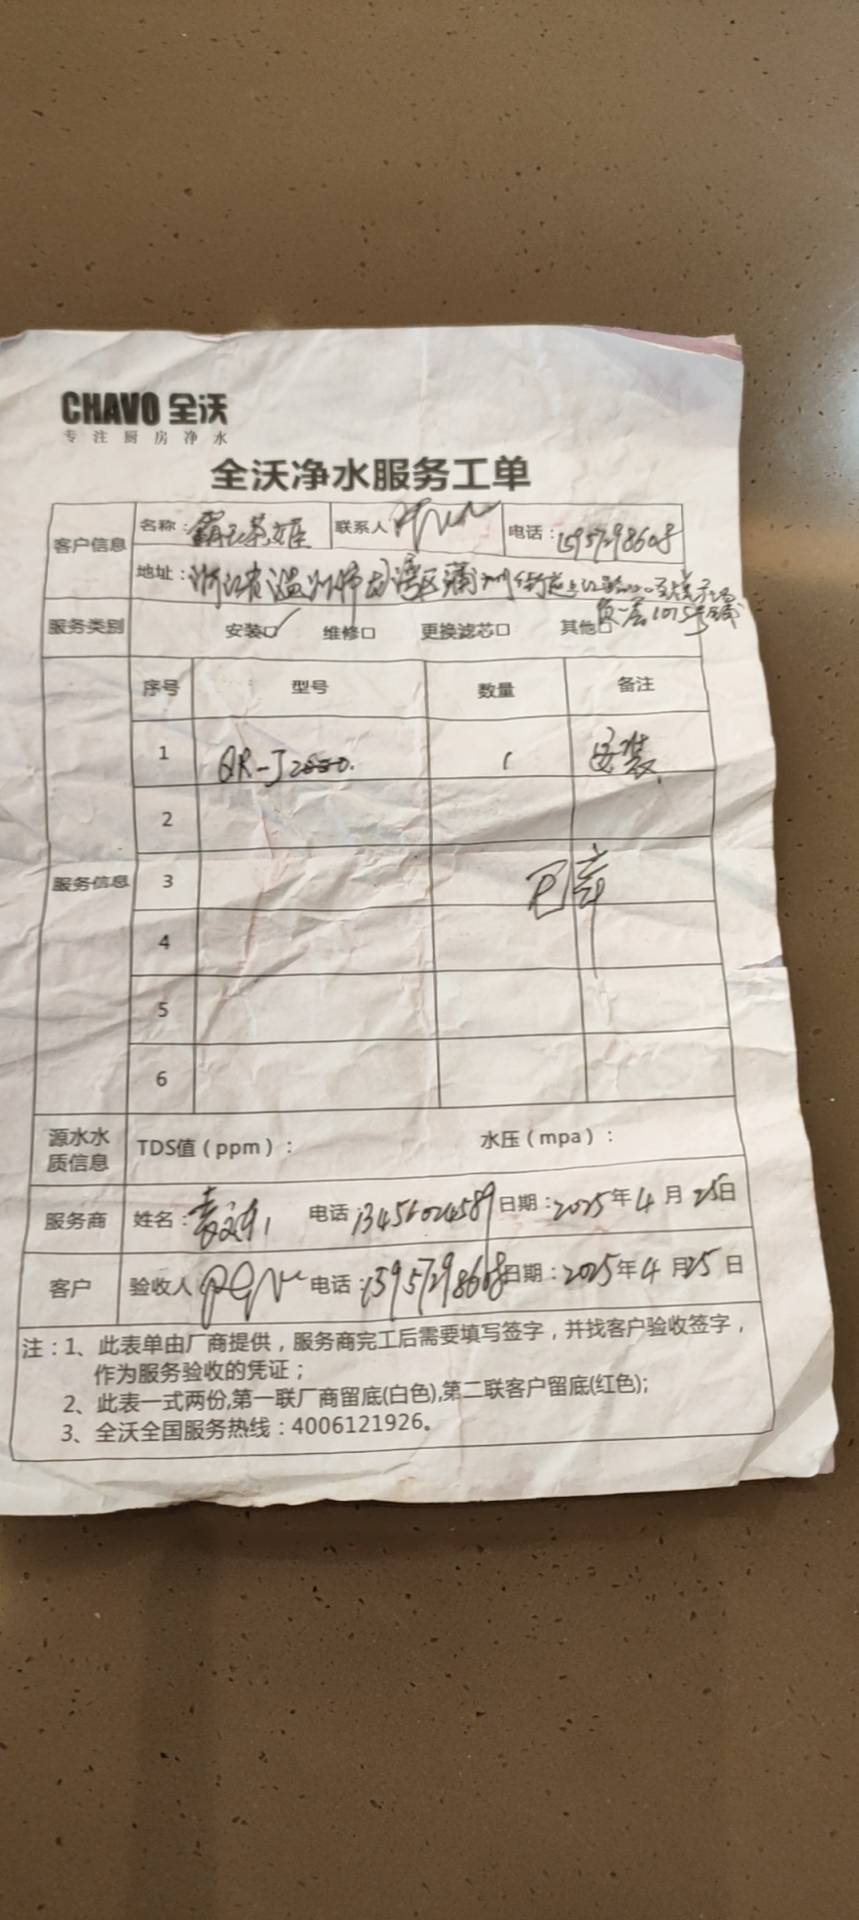 CHAVO 全沃
专注厨房净水
全沃净水服务工单
客户信息 名称：霸王茶姬 联系人 电话：15957298608
地址：浙江省温州市龙湾区蒲州街道
负一层1075号
服务类别 安装□✓ 维修□ 更换滤芯□ 其他□
服务信息 序号 型号 数量 备注
1 QR-J2000. 1 安装
2
3
4
5
6
源水水质信息 TDS值（ppm）： 水压（mpa）：
服务商 姓名： 电话：13456024589 日期：2025年4月25日
客户 验收人 电话：15957298608 日期：2025年4月25日
注：1、此表单由厂商提供，服务商完工后需要填写签字，并找客户验收签字，
作为服务验收的凭证；
2、此表一式两份,第一联厂商留底(白色),第二联客户留底(红色);
3、全沃全国服务热线：4006121926。